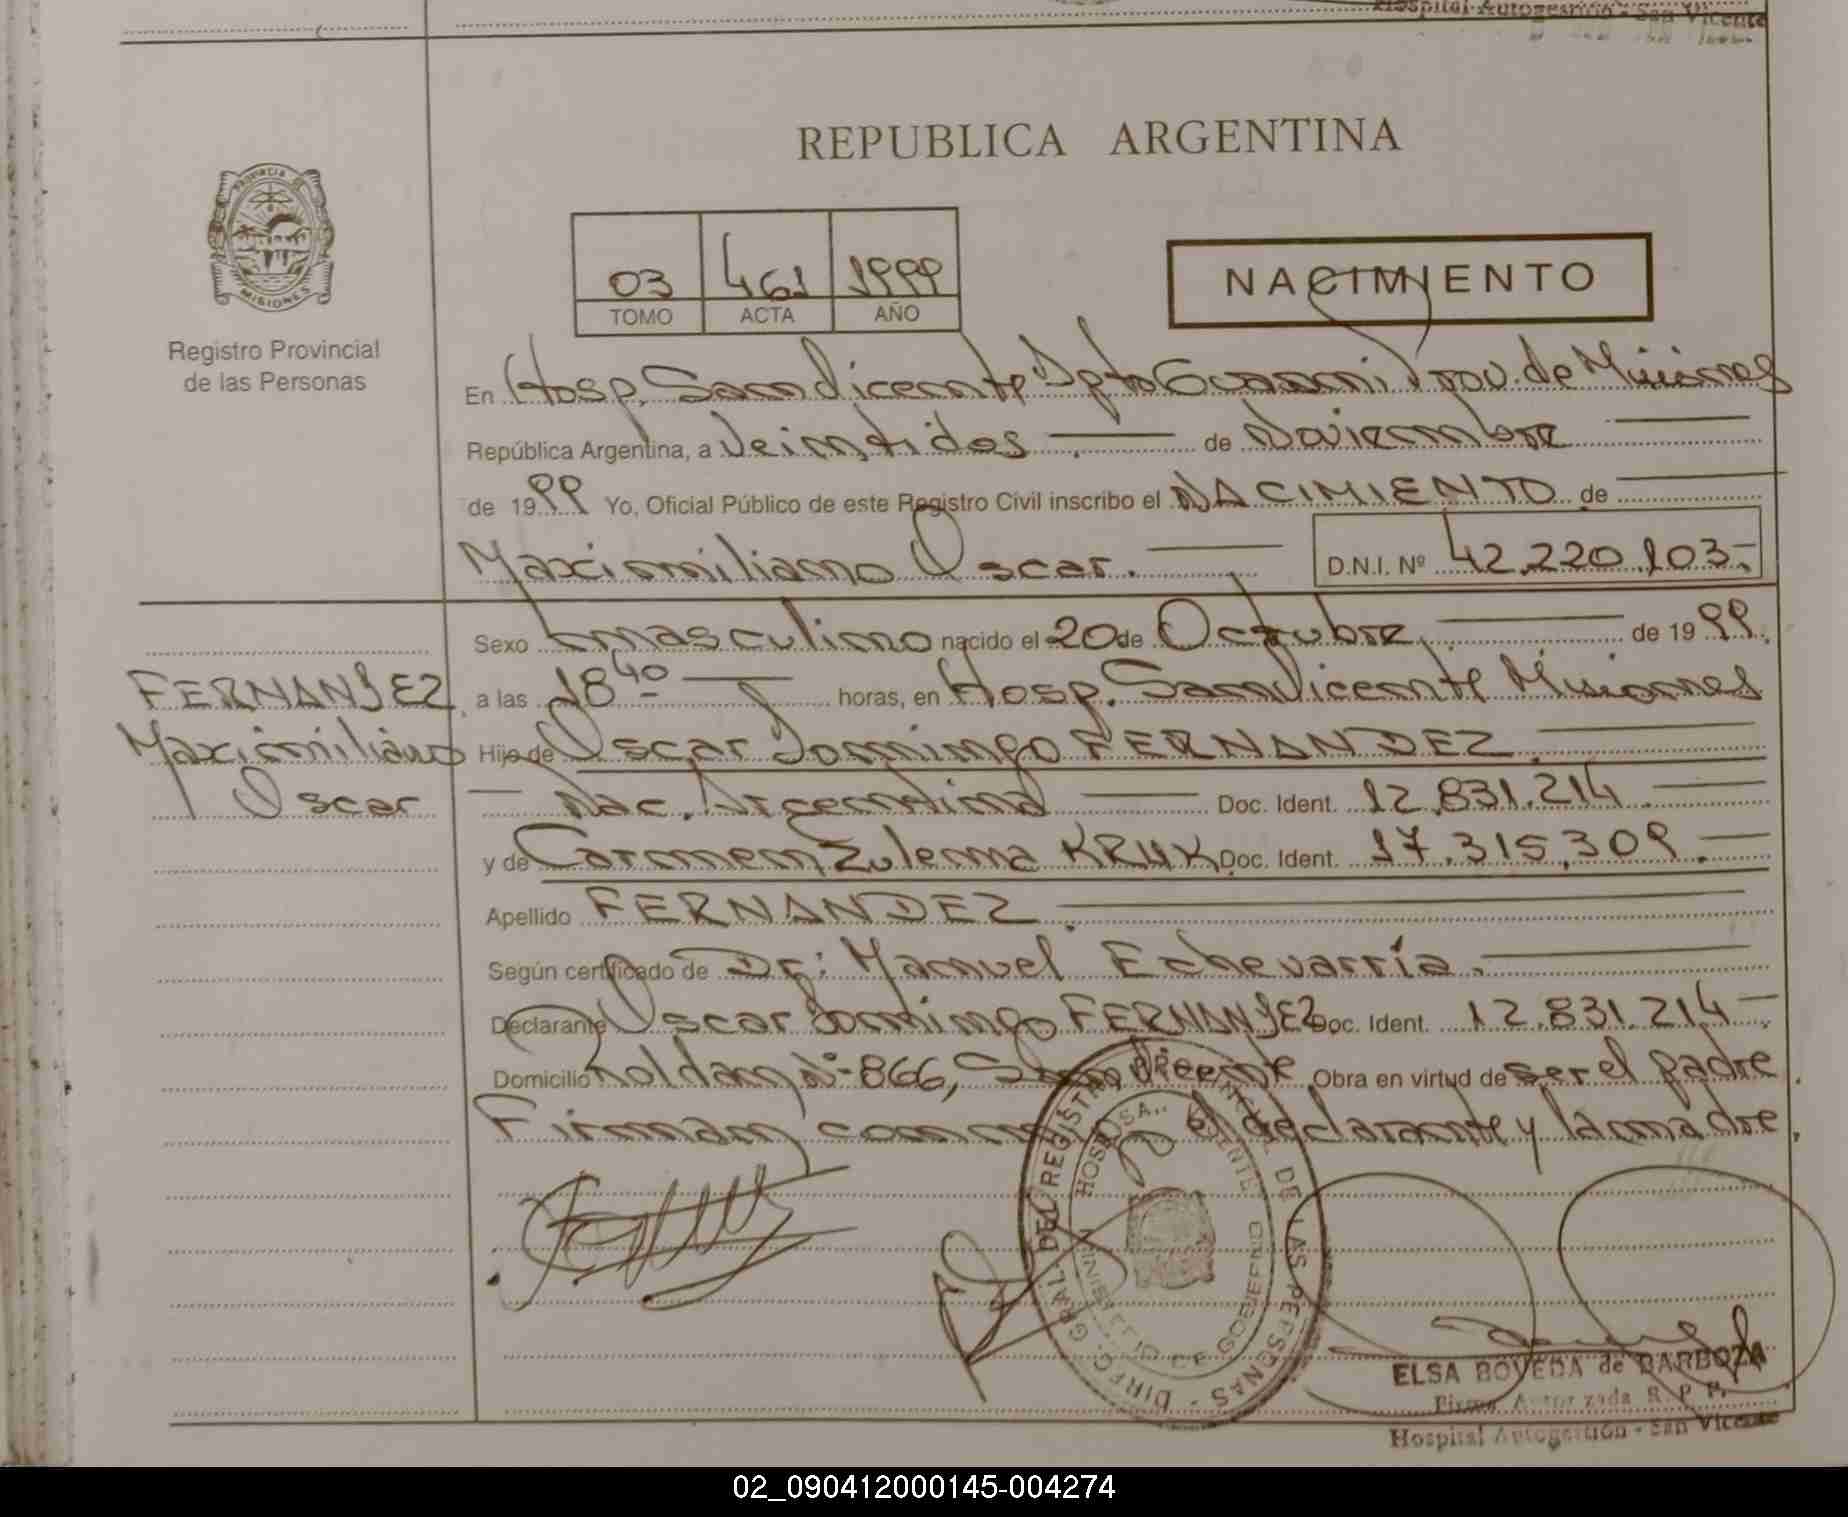 Hospital Autogestión - San Vicente
REPUBLICA ARGENTINA
PROVINCIA DE
MISIONES
Registro Provincial
de las Personas
03 461 1999
TOMO ACTA AÑO
NACIMIENTO
En Hosp. San Vicente Dpto Guarani Prov. de Misiones
República Argentina, a Veintidos de Noviembre
de 1999 Yo, Oficial Público de este Registro Civil inscribo el NACIMIENTO de
Maximiliano Oscar. D.N.I. Nº 42.220.103.-
Sexo masculino nacido el 20 de Octubre de 1999.
FERNANDEZ
Maximiliano
Oscar
a las 18 40 horas, en Hosp. San Vicente Misiones
Hijo de Oscar Domingo FERNANDEZ
Nac. Argentina Doc. Ident. 12.831.214
y de Carmen Zulema KRUK Doc. Ident. 17.315.309.
Apellido FERNANDEZ
Según certificado de Dr: Manuel Echevarría.
Declarante Oscar Domingo FERNANDEZ Doc. Ident. 12.831.214
Domicilio Roldan Nº 866, San Vicente Obra en virtud de ser el padre
Firman conmigo el declarante y la madre.
DIREC. GRAL. DEL REGISTRO PROVINCIAL DE LAS PERSONAS
MINISTERIO DE GOBIERNO
ELSA BOVEDA de BARBOZA
Firma Autorizada R. P. P.
Hospital Autogestión - San Vicente
02_090412000145-004274